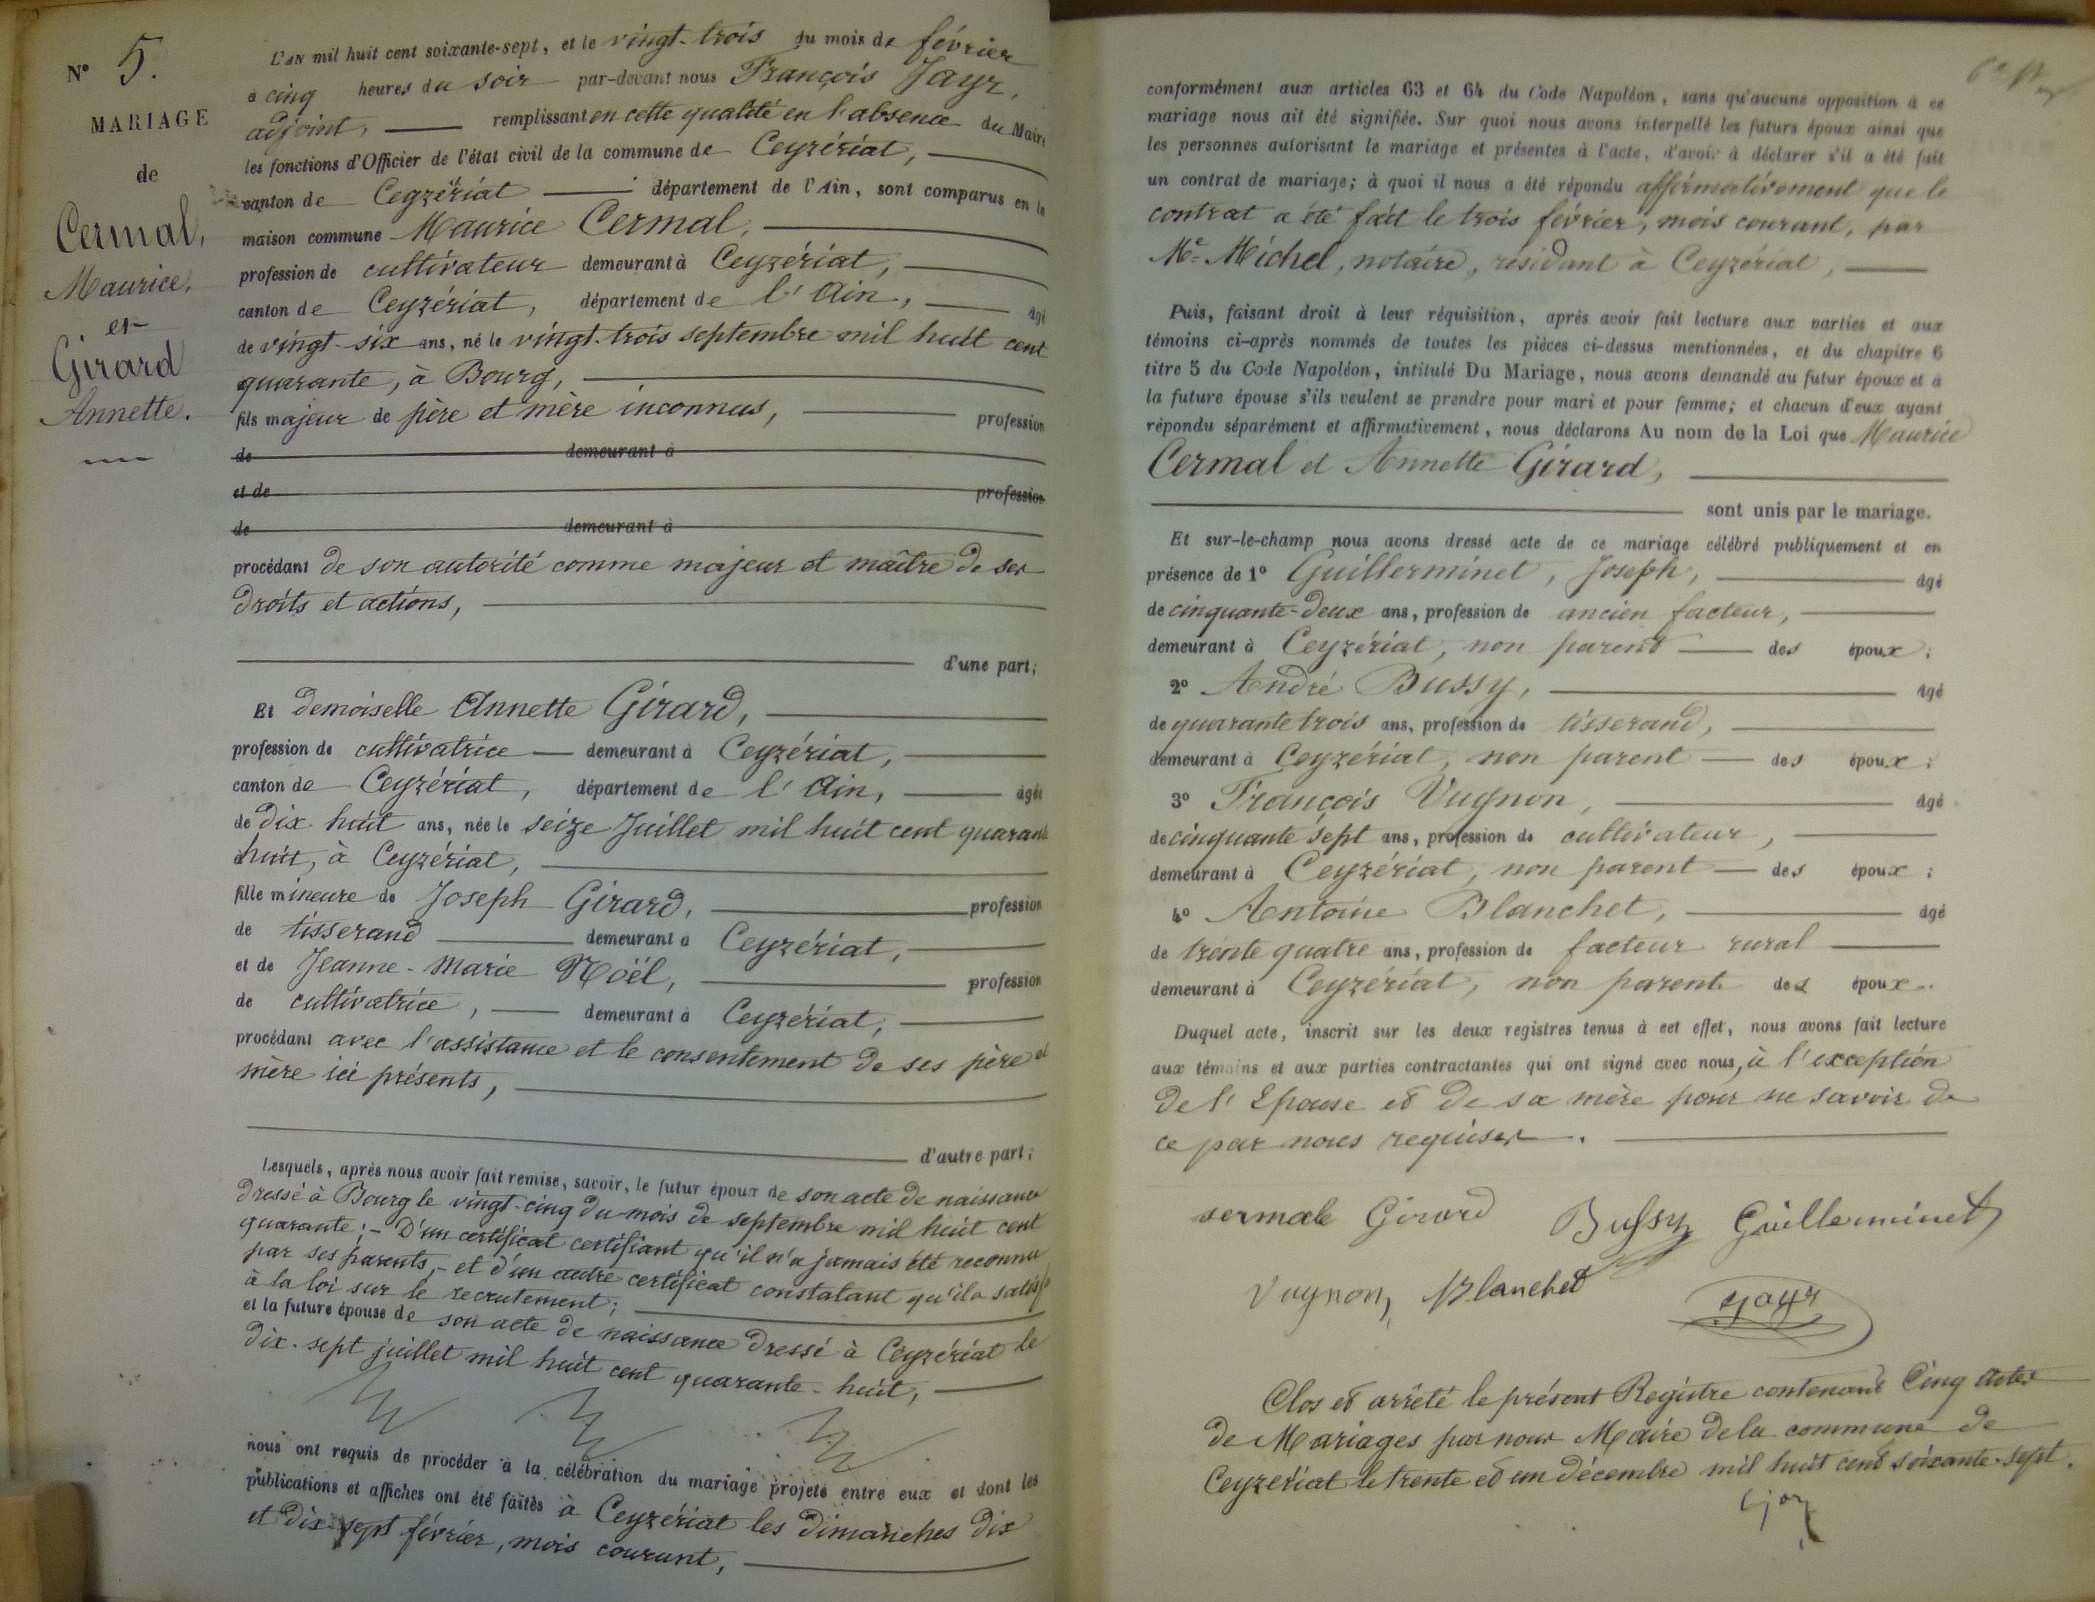 N° 5.
MARIAGE
de
Cermal,
Maurice,
et
Girard
Annette.
L'AN mil huit cent soixante-sept, et le vingt-trois du mois de février
à cinq heures du soir par-devant nous François Jayr,
adjoint, remplissant en cette qualité en l'absence du Maire
les fonctions d'Officier de l'état civil de la commune de Ceyzériat,
canton de Ceyzériat département de l'Ain, sont comparus en la
maison commune Maurice Cermal,
profession de cultivateur demeurant à Ceyzériat,
canton de Ceyzériat, département de l'Ain, âgé
de vingt-six ans, né le vingt-trois septembre mil huit cent
quarante, à Bourg,
fils majeur de père et mère inconnus, profession
de demeurant à
et de profession
de demeurant à
procédant de son autorité comme majeur et maître de ses
droits et actions,
d'une part;
Et demoiselle Annette Girard,
profession de cultivatrice demeurant à Ceyzériat,
canton de Ceyzériat, département de l'Ain, âgée
de dix-huit ans, née le seize Juillet mil huit cent quarante
huit, à Ceyzériat,
fille mineure de Joseph Girard, profession
de tisserand demeurant à Ceyzériat,
et de Jeanne-Marie Noël, profession
de cultivatrice, demeurant à Ceyzériat,
procédant avec l'assistance et le consentement de ses père et
mère ici présents,
d'autre part;
Lesquels, après nous avoir fait remise, savoir, le futur époux de son acte de naissance
dressé à Bourg le vingt-cinq du mois de septembre mil huit cent
quarante; - D'un certificat certifiant qu'il n'a jamais été reconnu
par ses parents, - et d'un autre certificat constatant qu'il a satisf
à la loi sur le recrutement;
et la future épouse de son acte de naissance dressé à Ceyzériat le
dix-sept juillet mil huit cent quarante-huit,
nous ont requis de procéder à la célébration du mariage projeté entre eux et dont les
publications et affiches ont été faites à Ceyzériat les dimanches dix
et dix-sept février, mois courant,
conformément aux articles 63 et 64 du Code Napoléon, sans qu'aucune opposition à ce
mariage nous ait été signifiée. Sur quoi nous avons interpellé les futurs époux ainsi que
les personnes autorisant le mariage et présentes à l'acte, d'avoir à déclarer s'il a été fait
un contrat de mariage; à quoi il nous a été répondu affirmativement que le
contrat a été fait le trois février, mois courant, par
Me Michel, notaire, résidant à Ceyzériat,
Puis, faisant droit à leur réquisition, après avoir fait lecture aux parties et aux
témoins ci-après nommés de toutes les pièces ci-dessus mentionnées, et du chapitre 6
titre 5 du Code Napoléon, intitulé Du Mariage, nous avons demandé au futur époux et à
la future épouse s'ils veulent se prendre pour mari et pour femme; et chacun d'eux ayant
répondu séparément et affirmativement, nous déclarons Au nom de la Loi que Maurice
Cermal et Annette Girard,
sont unis par le mariage.
Et sur-le-champ nous avons dressé acte de ce mariage célébré publiquement et en
présence de 1° Guillerminet, Joseph, âgé
de cinquante-deux ans, profession de ancien facteur,
demeurant à Ceyzériat, non parent des époux;
2° André Bussy, âgé
de quarante trois ans, profession de tisserand,
demeurant à Ceyzériat, non parent des époux;
3° François Vugnon, âgé
de cinquante sept ans, profession de cultivateur,
demeurant à Ceyzériat, non parent des époux;
4° Antoine Blanchet, âgé
de trente quatre ans, profession de facteur rural
demeurant à Ceyzériat, non parent des époux.
Duquel acte, inscrit sur les deux registres tenus à cet effet, nous avons fait lecture
aux témoins et aux parties contractantes qui ont signé avec nous, à l'exception
de l'Epouse et de sa mère pour ne savoir de
ce par nous requises.
sermale Girard Bussy Guilleminet
Vugnon, Blanchet Jayr
Clos et arrêté le présent Registre contenant Cinq actes
de Mariages par nous Maire de la commune de
Ceyzériat le trente et un décembre mil huit cent soixante-sept.